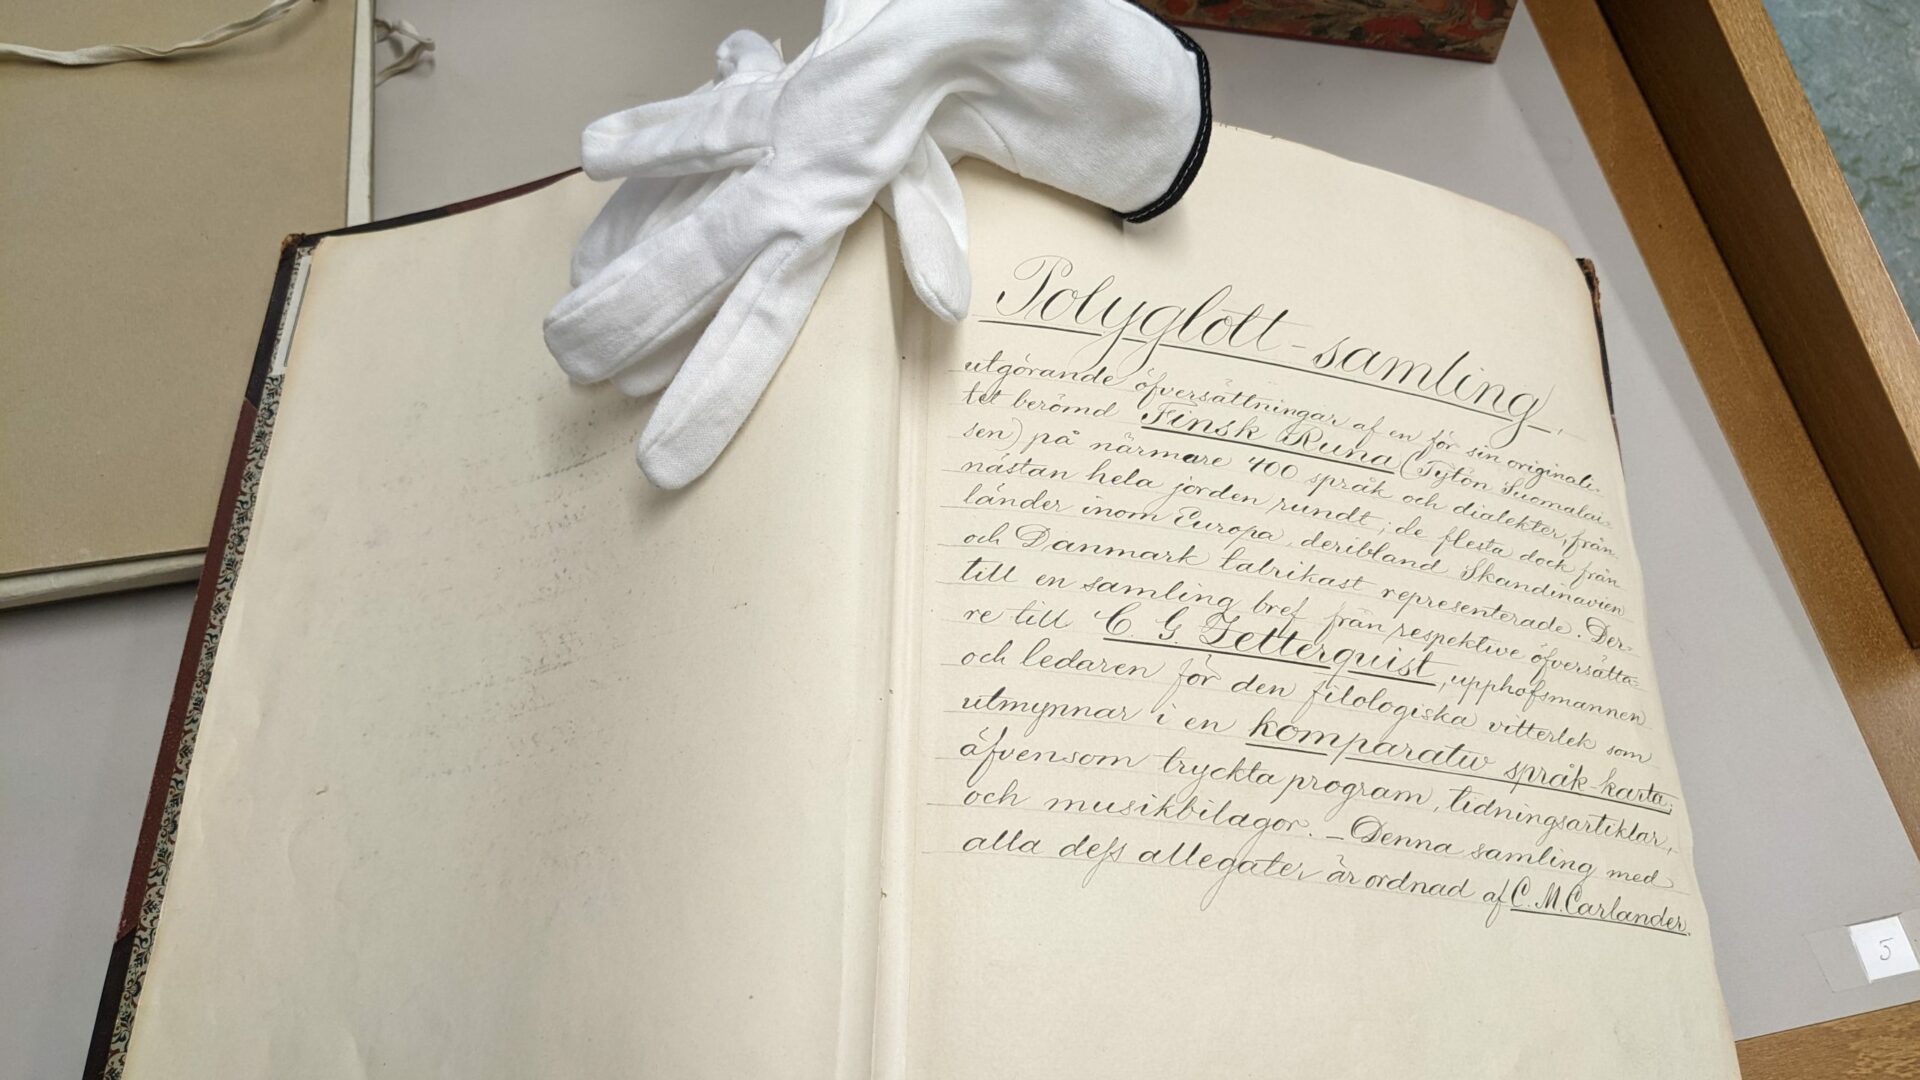 Polyglott-samling,
utgörande öfversättningar af en för sin originali-
tet berömd Finsk Runa (Tytön Suomalai-
sen) på närmare 400 språk och dialekter, från
nästan hela jorden rundt; de flesta dock från
länder inom Europa, deribland Skandinavien
och Danmark talrikast representerade. Der-
till en samling bref från respektive öfversätta-
re till C. G. Zetterquist, upphofsmannen
och ledaren för den filologiska vitterlek som
utmynnar i en komparativ språk-karta;
äfvensom tryckta program, tidningsartiklar,
och musikbilagor. – Denna samling med
alla dess allegater är ordnad af C. M. Carlander.
5